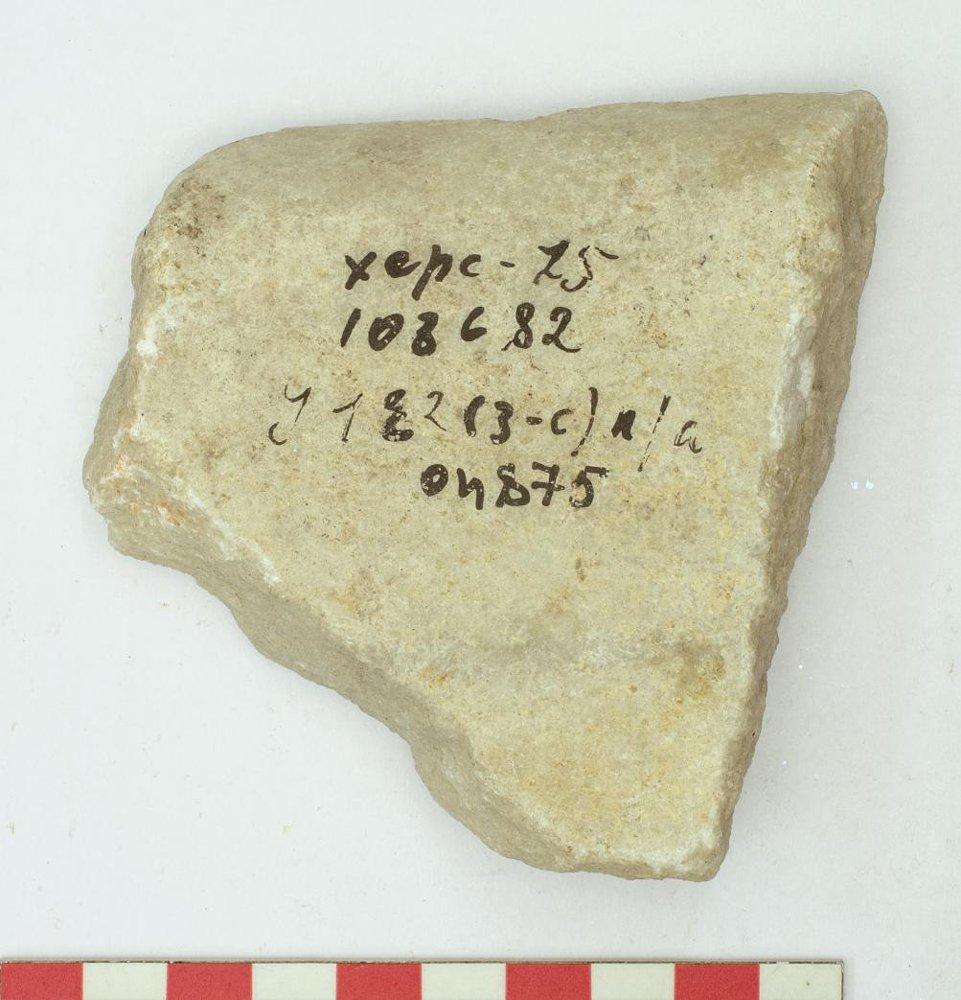 херс-75
108 с 82
У 1 82 (3-с) п/а
оп875